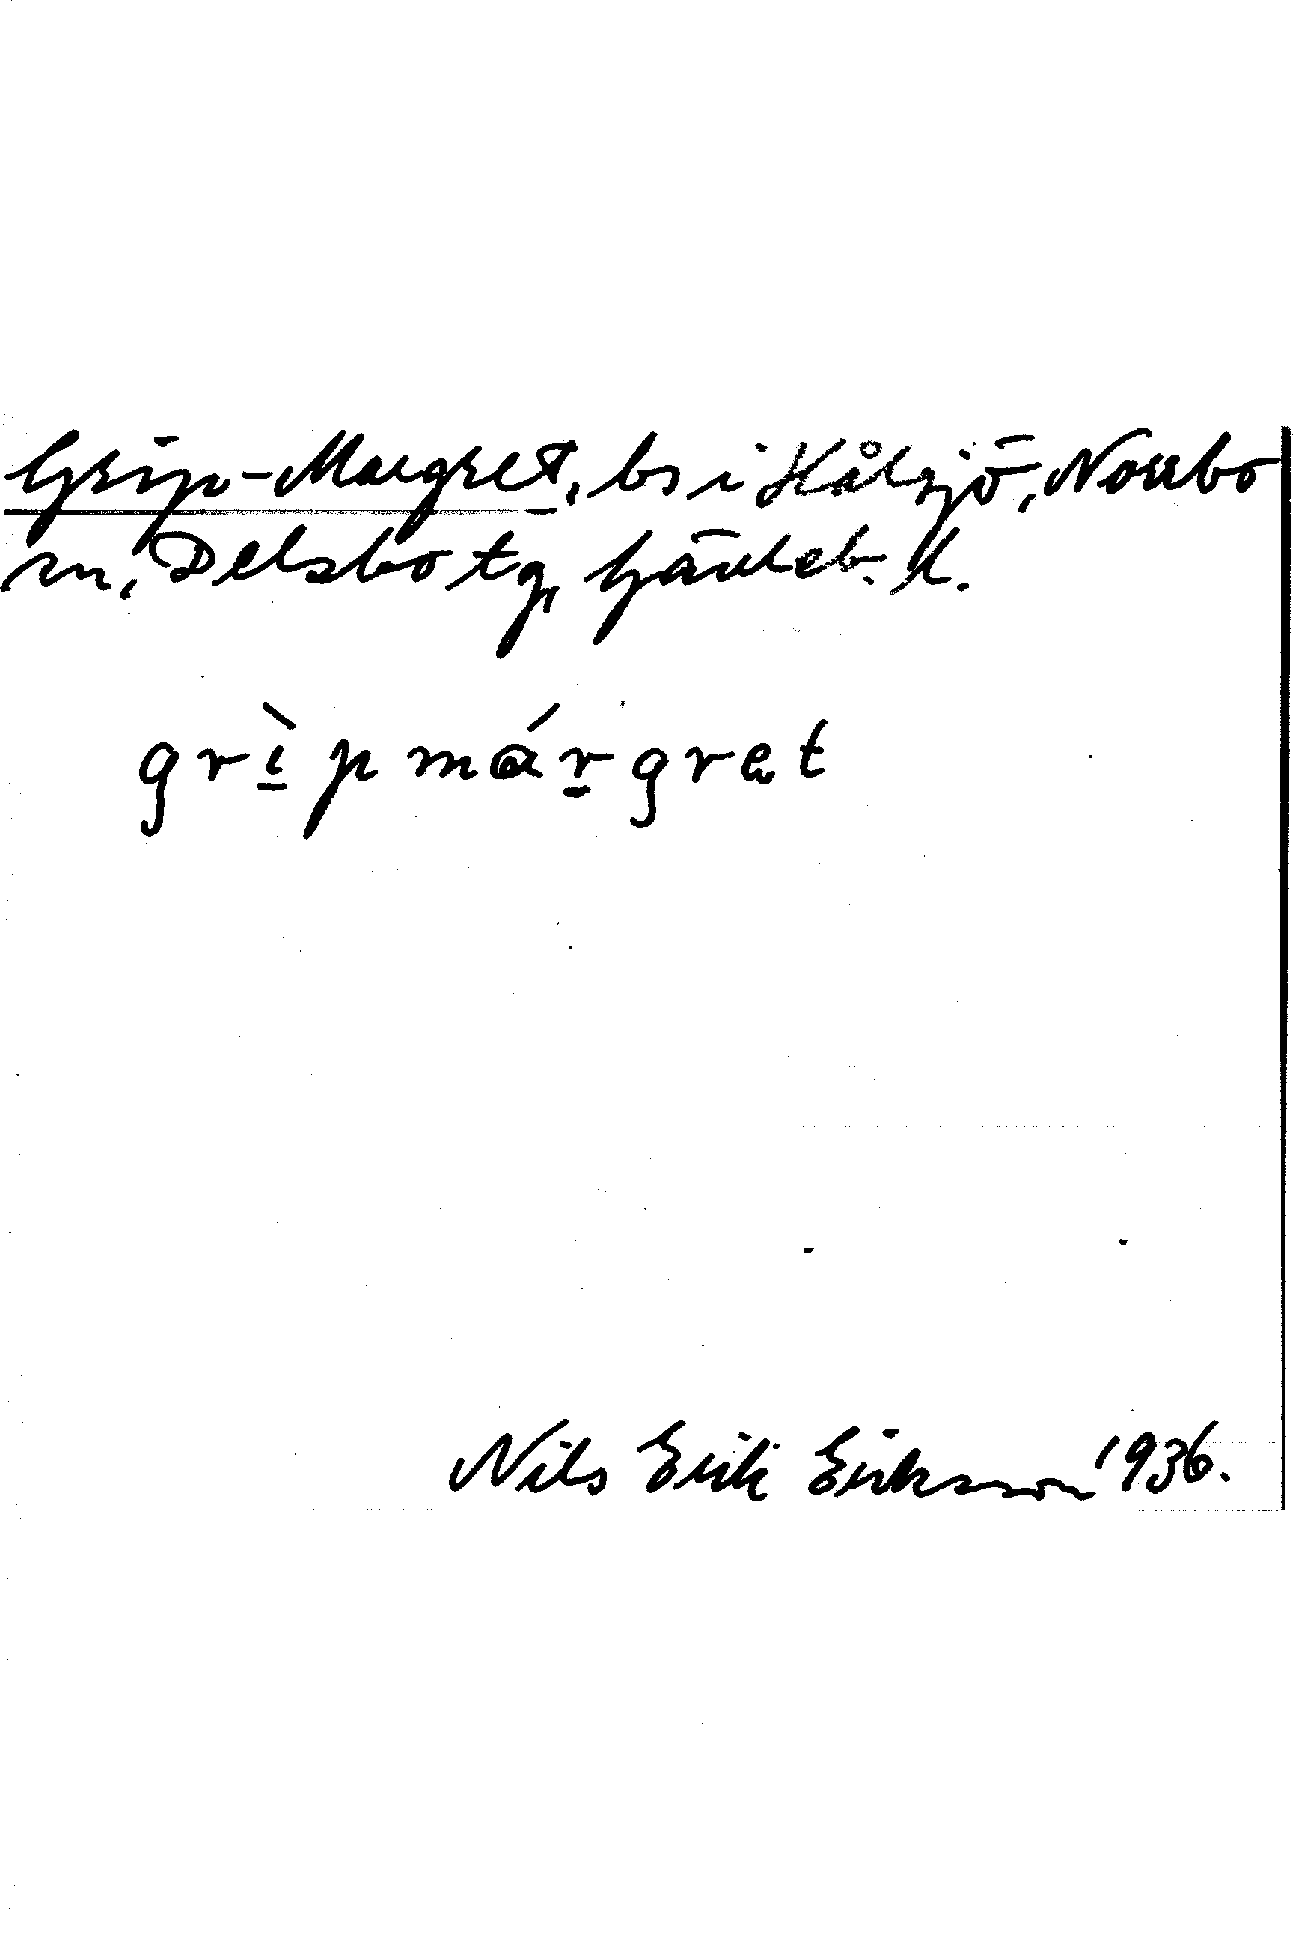 Grip-Margret, bs i Hålsjö, Norrbo
sn, Delsbo tg, Gävleb. l.
grìpmárgret
Nils Erik Eriksson 1936.